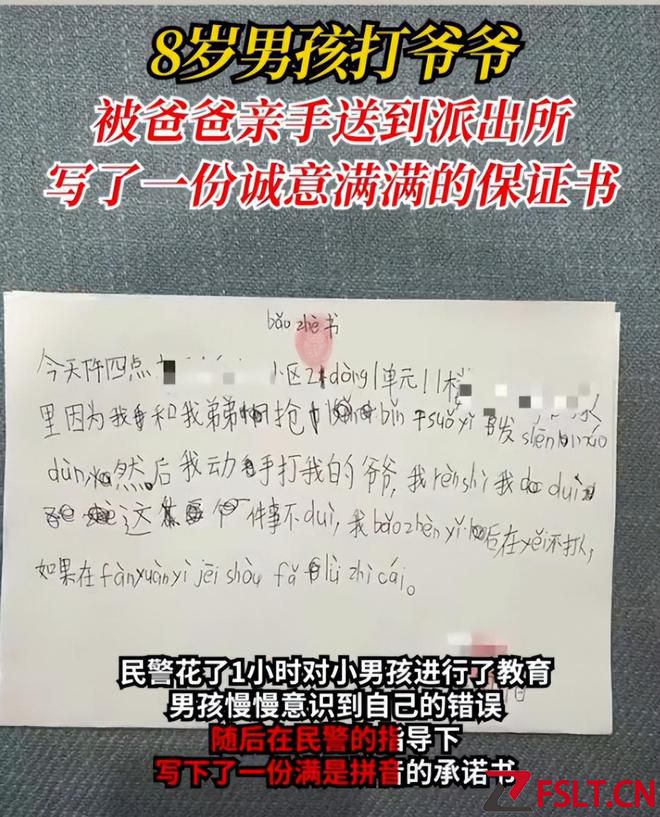 8岁男孩打爷爷
被爸爸亲手送到派出所
写了一份诚意满满的保证书
bǎo zhè书
今天下午四点 小区21dòng1单元11楼
里因为我和我弟弟抢 bǐn 干suǒ yǐ 发shēn
dùn 然后我动手打我的爷爷,我rèn shi 我 duì
这 个件事不duì,我bǎo zhèn yǐ后在yě不打人,
如果在fàn yuàn yì jēi shòu fǎ lǜ zhì cái。
民警花了1小时对小男孩进行了教育
男孩慢慢意识到自己的错误
随后在民警的指导下
写下了一份满是拼音的承诺书
FSLT.CN